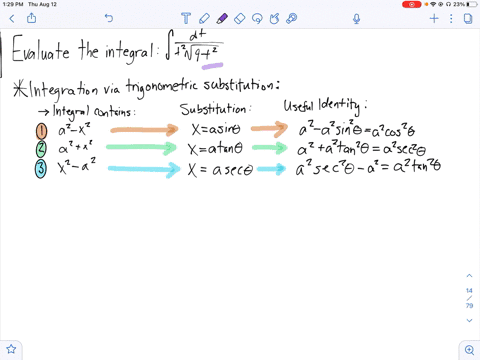 1:29 PM Thu Aug 12
23%
Evaluate the integral: ∫ dt / t²√9-t²
*Integration via trigonometric substitution:
→ Integral contains: Substitution: Useful Identity:
1 a²-x² x=asinθ a²-a²sin²θ=a²cos²θ
2 a²+x² x=atanθ a²+a²tan²θ=a²sec²θ
3 x²-a² x=asecθ a²sec²θ-a²=a²tan²θ
14
/
79